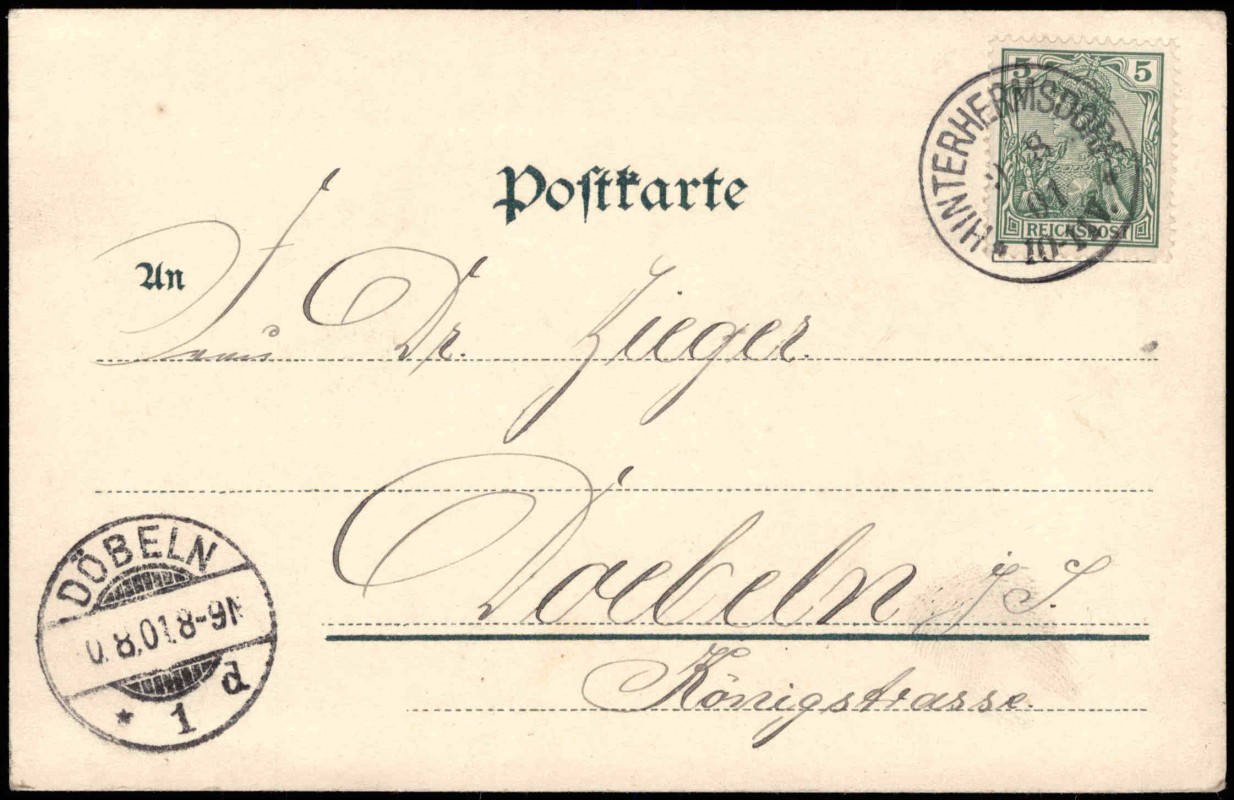 5 5
REICHSPOST
HINTERHERMSDORF
8
01
10-11V.
Postkarte
An
Frau Dr. Zieger.
Doebeln i. S.
Königstrasse.
DÖBELN
8.01 8-9N
* 1 d